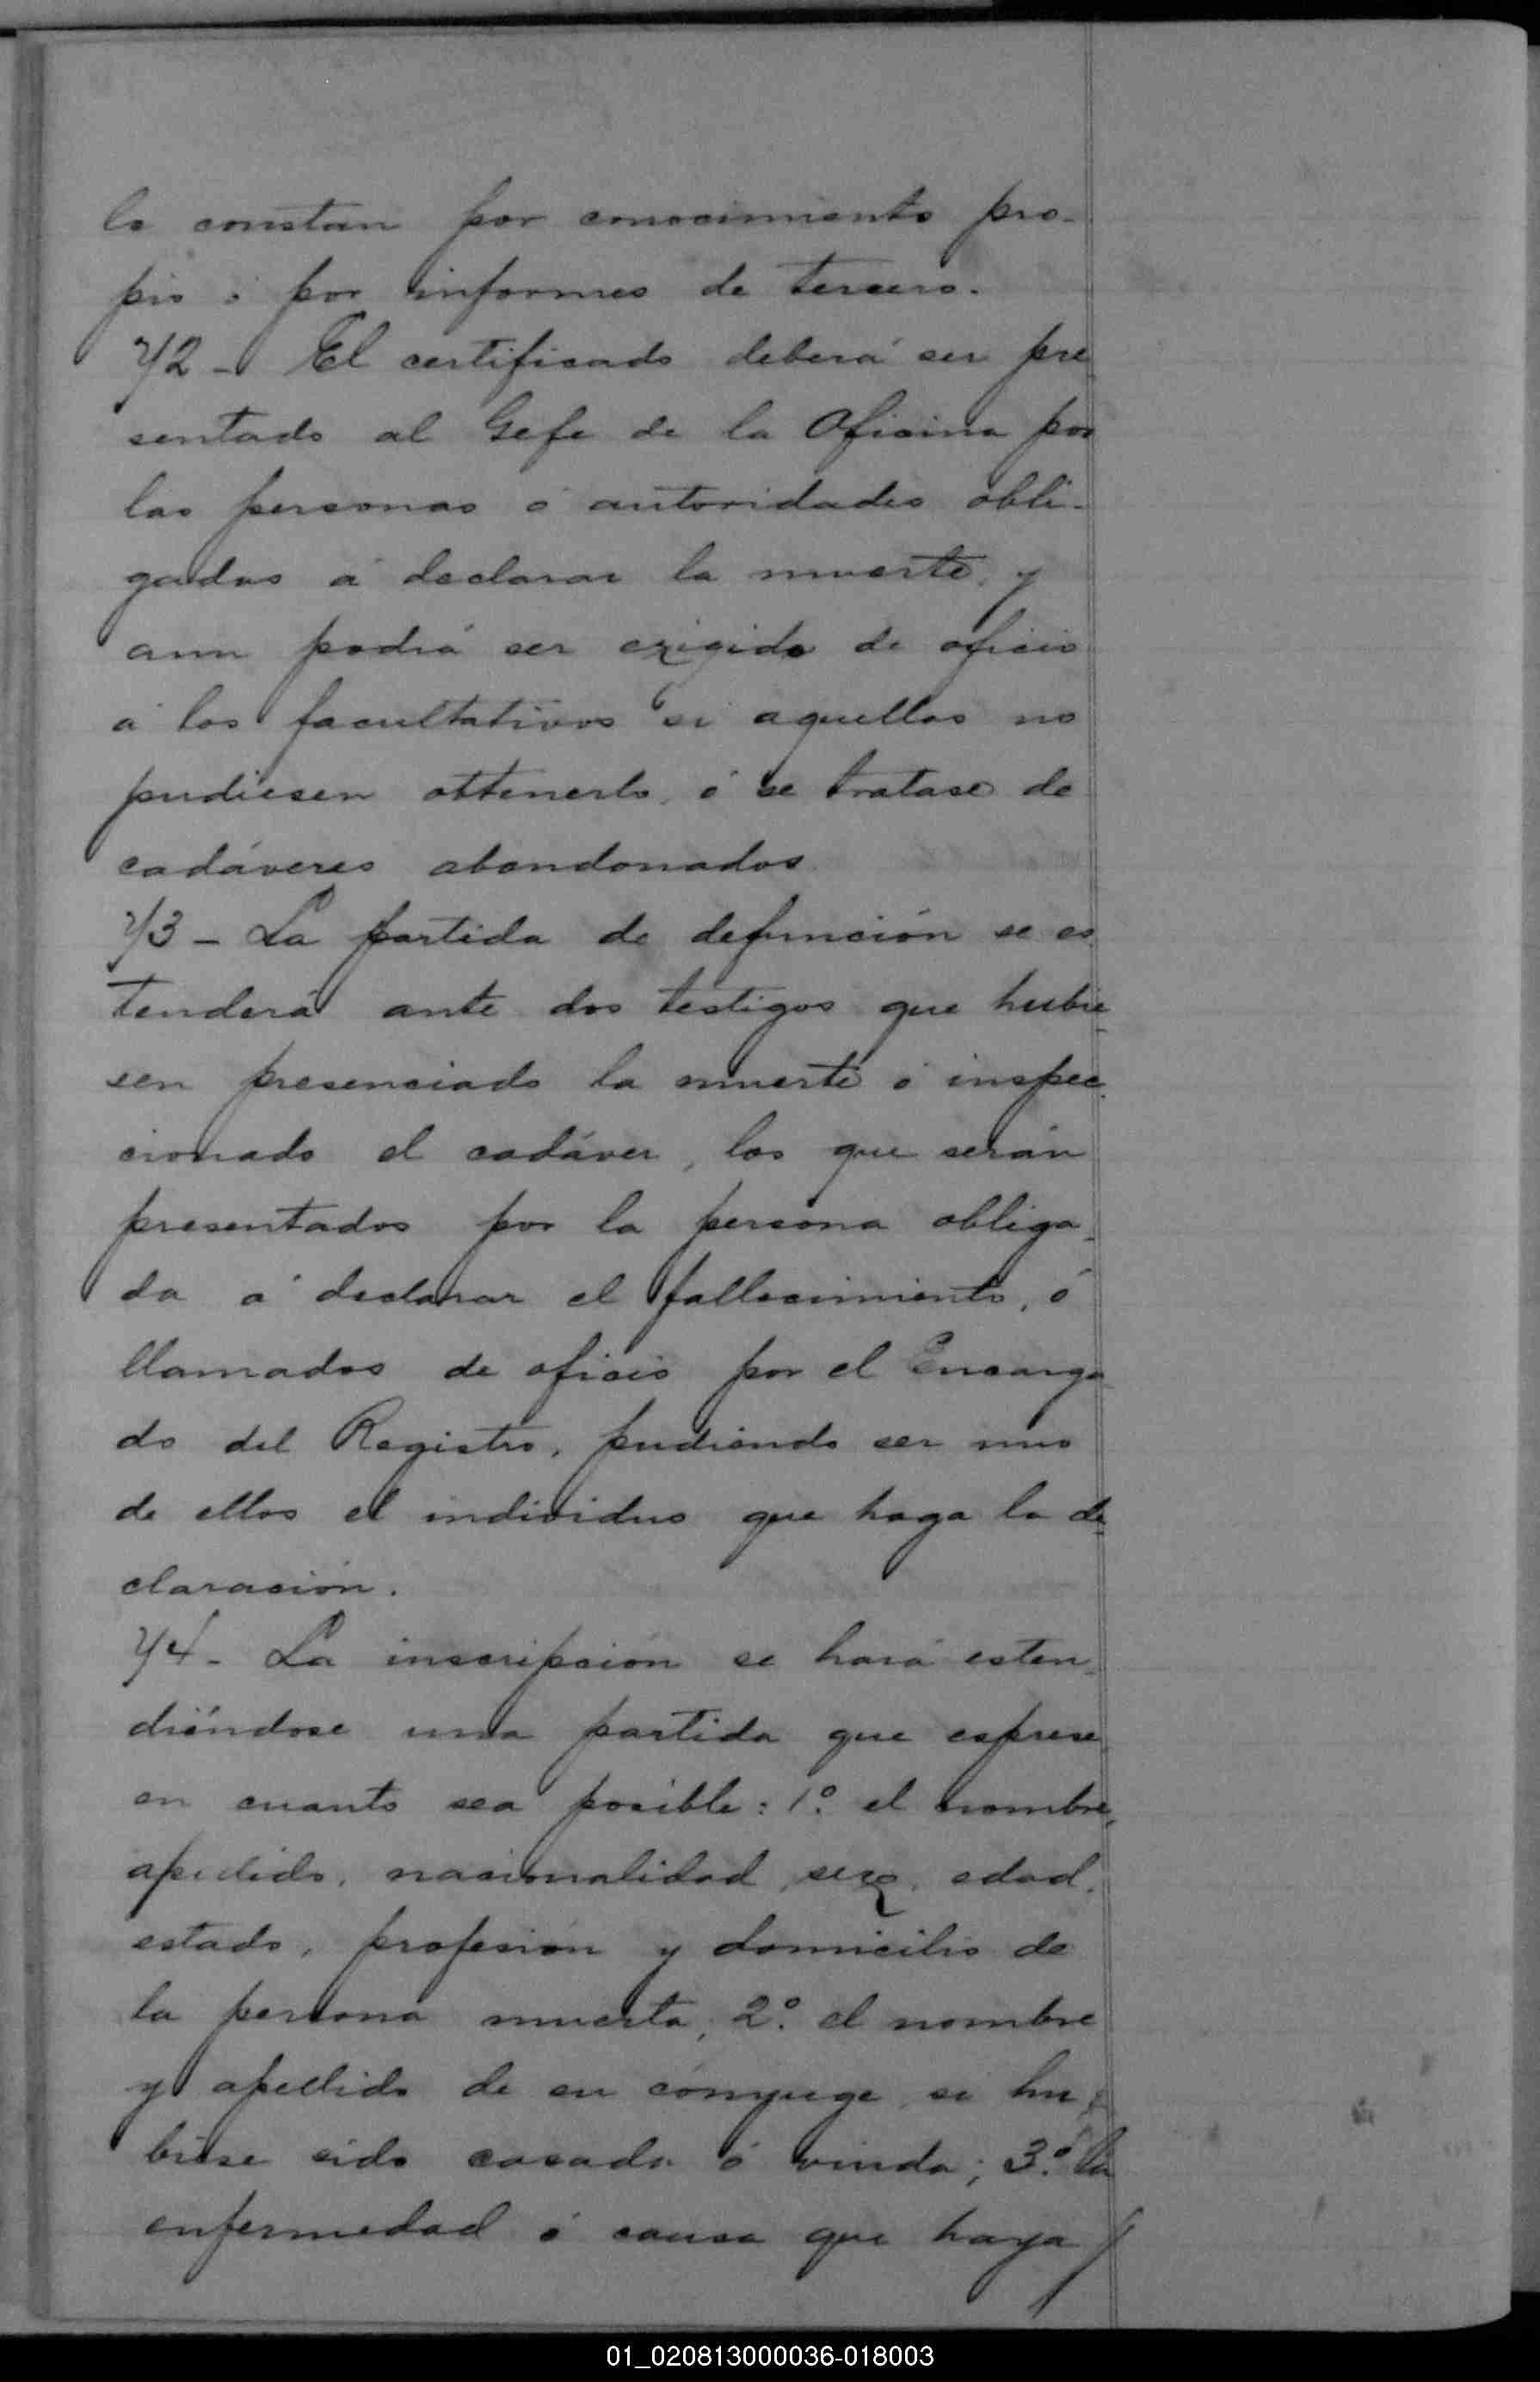 le constan por conocimiento pro-
pio ó por informes de tercero.
72 - El certificado deberá ser pre
sentado al Gefe de la Oficina por
las personas ó autoridades obli-
gadas á declarar la muerte, y
aun podrá ser exigido de oficio
á los facultativos si aquellas no
pudiesen obtenerlo, ó se tratase de
cadáveres abandonados
73 - La partida de defunción se es
tenderá ante dos testigos que hubie
sen presenciado la muerte ó inspec
cionado el cadáver, los que serán
presentados por la persona obliga-
da á declarar el fallecimiento, ó
llamados de oficio por el Encarga
do del Registro, pudiendo ser uno
de ellos el individuo que haga la de
claración.
74 - La inscripción se hará esten-
diéndose una partida que esprese
en cuanto sea posible: 1º. el nombre,
apellido, nacionalidad, sexo, edad,
estado, profesión y domicilio de
la persona muerta; 2º. el nombre
y apellido de su cónyuge, si hu
biese sido casada ó viuda; 3º. la
enfermedad ó causa que haya
01_020813000036-018003